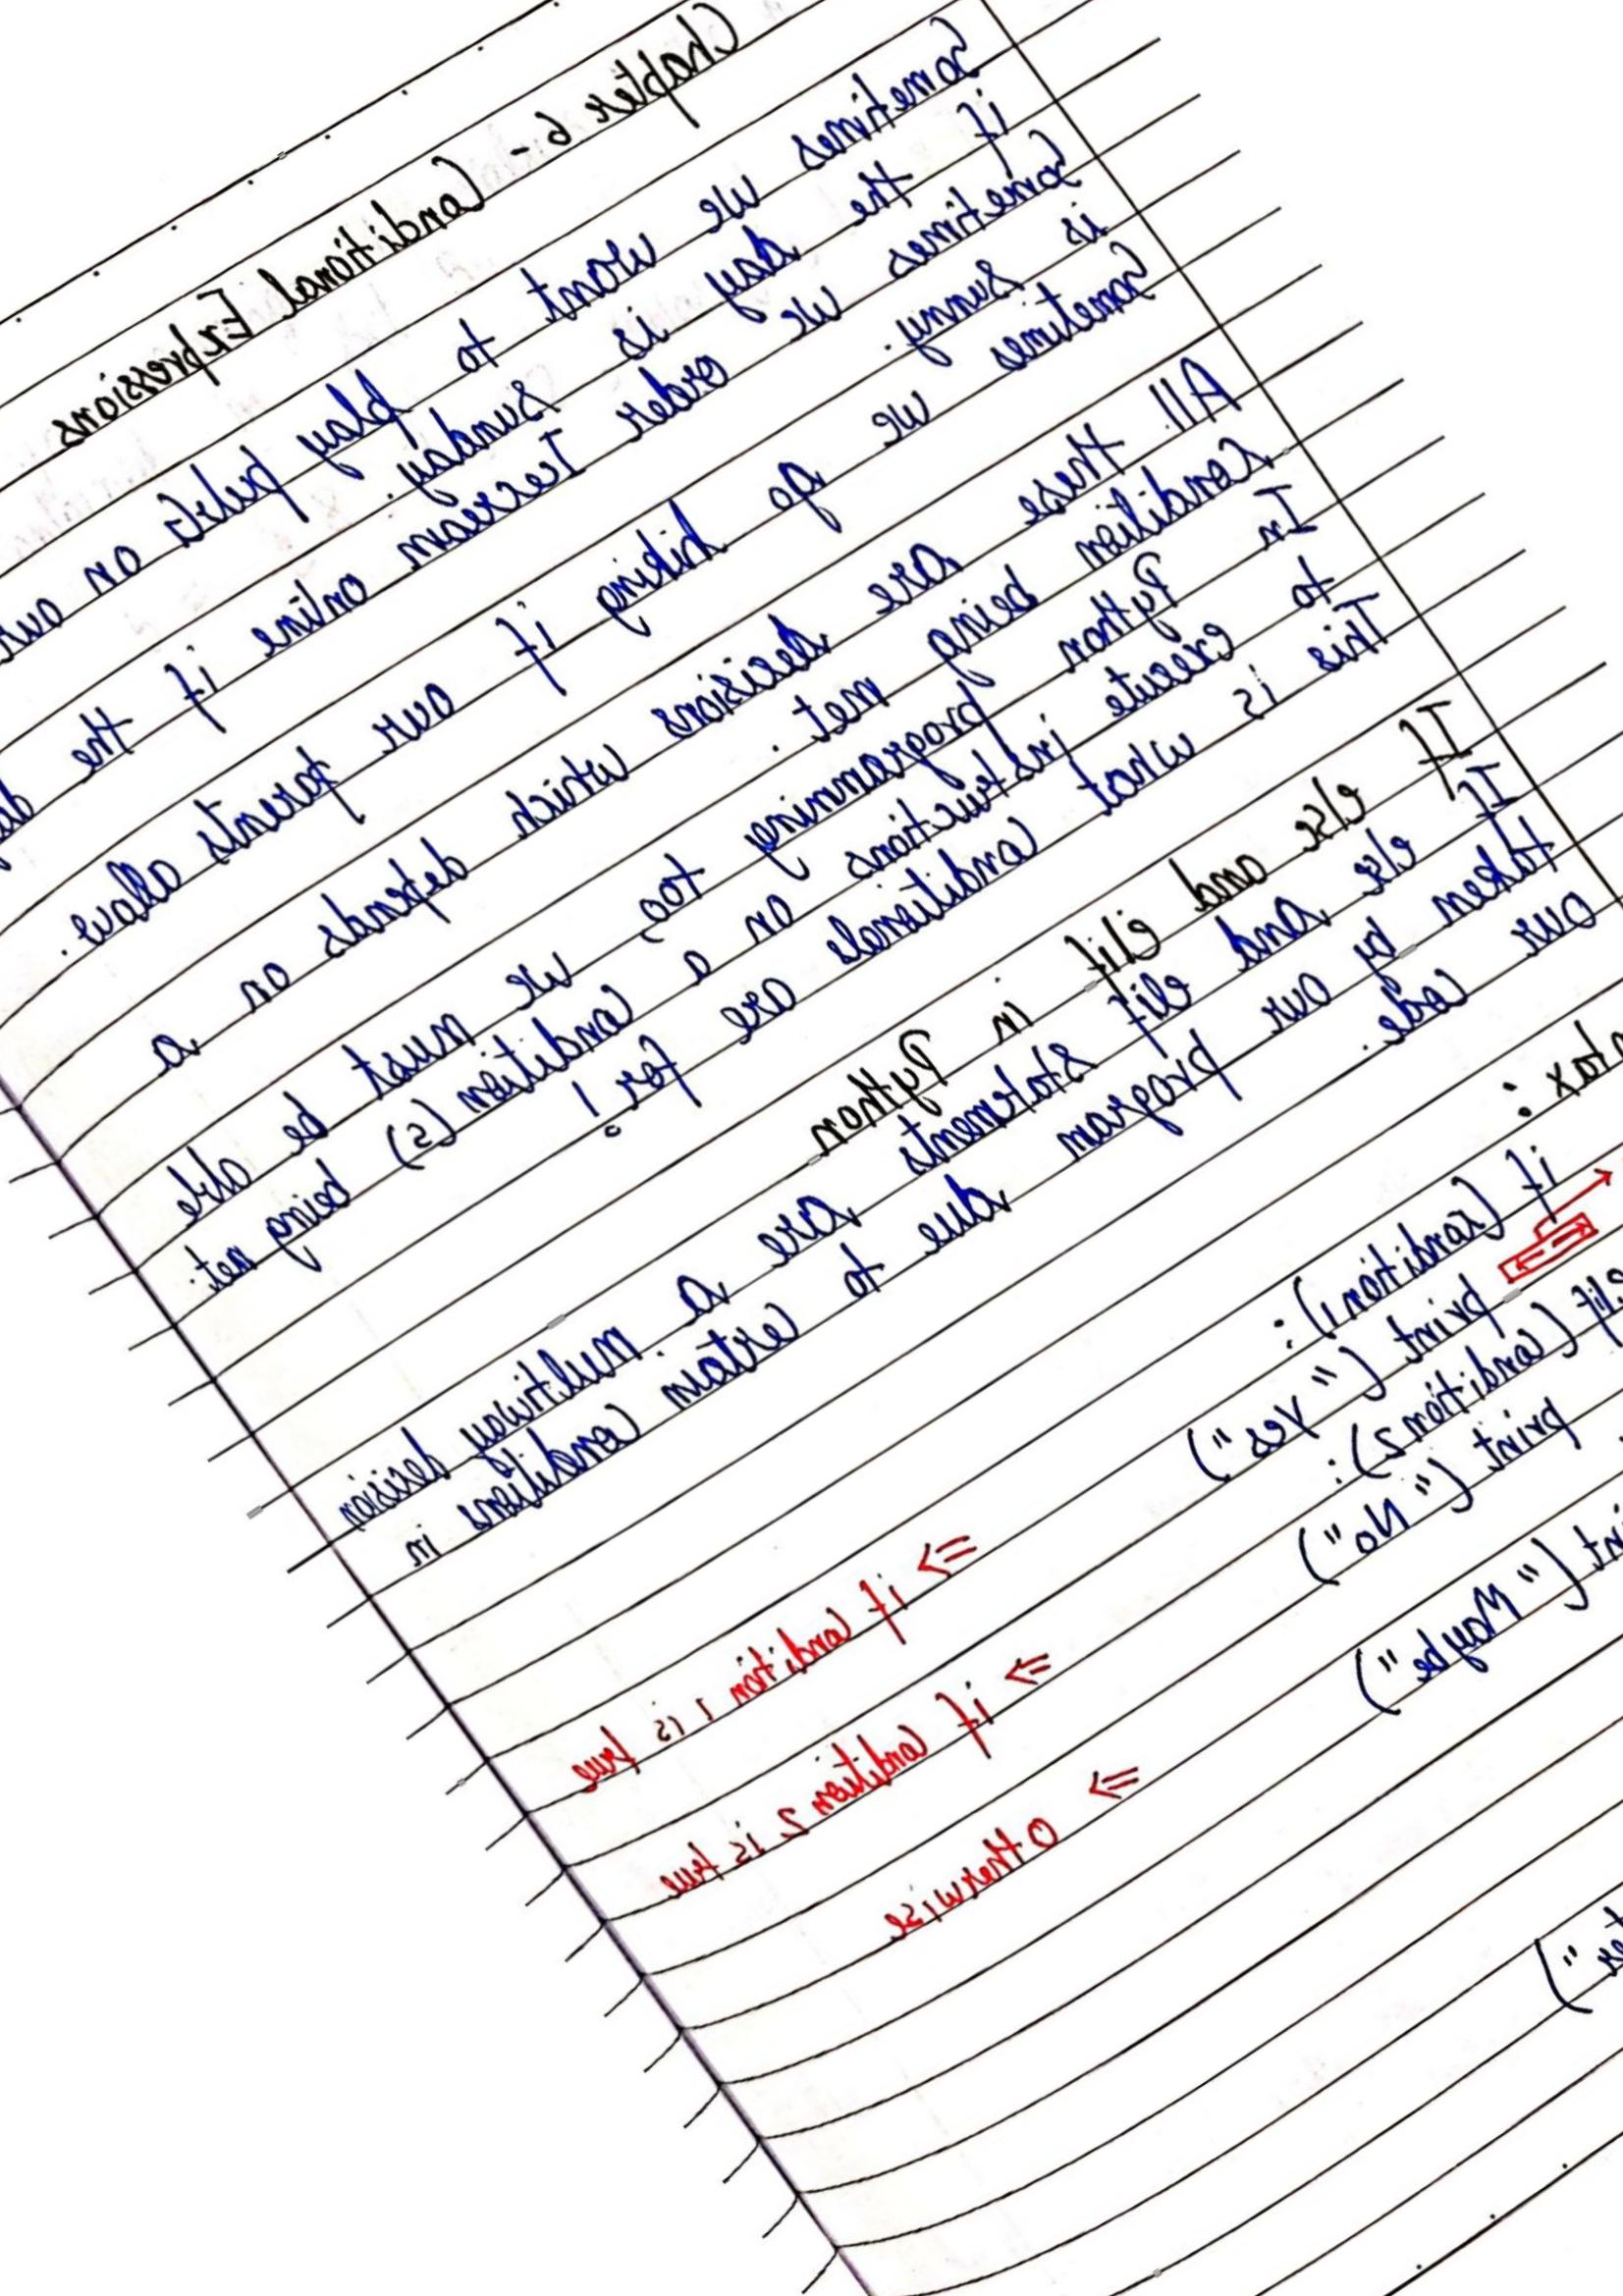 Chapter 6 - Conditional Expressions
Sometimes we want to play pubG on our
if the day is Sunday.
Sometimes we order Icecream online if the
is sunny.
Sometimes we go hiking if our parents allow.
All these are decisions which depends on a
condition being met.
In Python programming too, we must be able
to execute instructions on a condition(s) being met.
This is what conditionals are for!
If else and elif in Python
If else and elif statements are a multiway decision
taken by our program due to certain conditions in
our code.
if (condition1): => if condition 1 is true
print ("Yes")
elif (condition2): => if condition 2 is true
print ("No")
=> Otherwise
("Maybe")